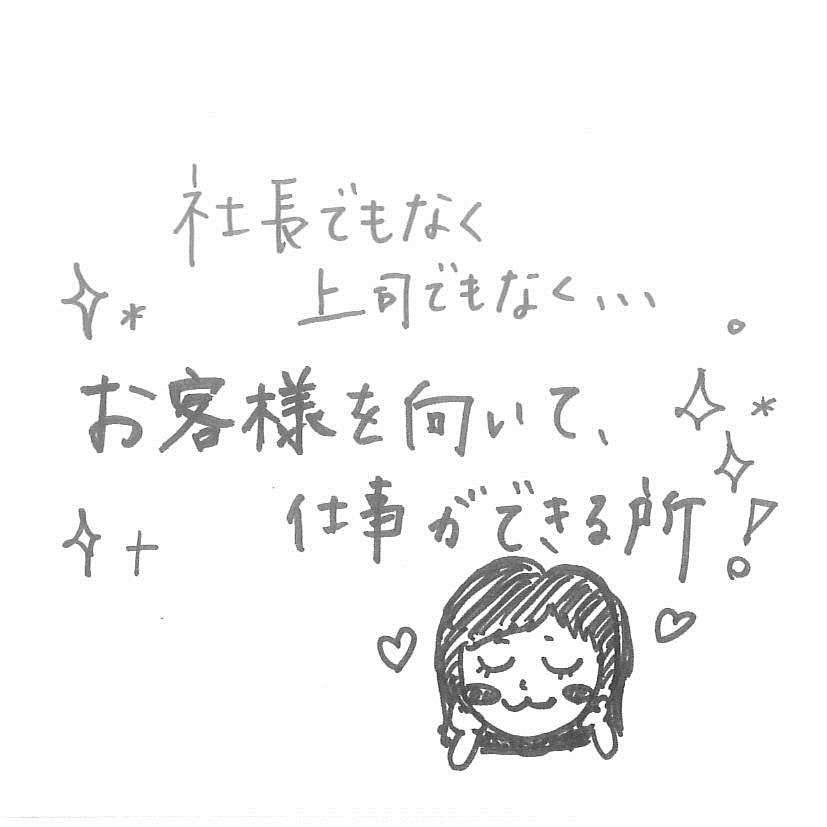 社長でもなく
上司でもなく、、、
お客様を向いて、
仕事ができる所!